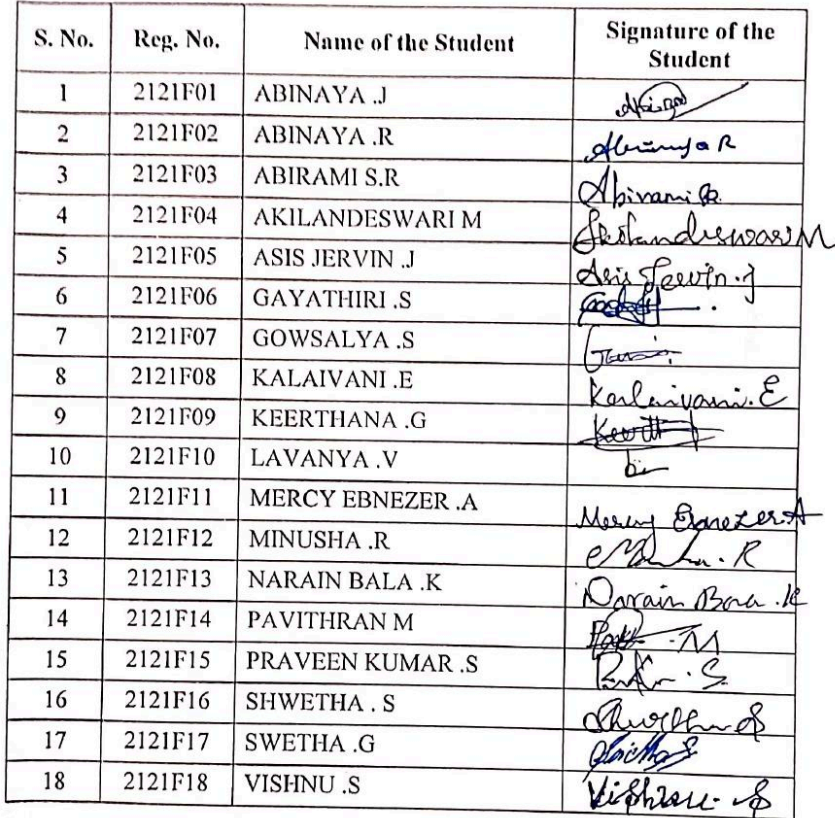 S. No. Reg. No. Name of the Student Signature of the
Student
1 2121F01 ABINAYA .J
2 2121F02 ABINAYA .R Abinaya R
3 2121F03 ABIRAMI S.R Abirami
4 2121F04 AKILANDESWARI M Akilandeswari M
5 2121F05 ASIS JERVIN .J Asis Jervin .J
6 2121F06 GAYATHIRI .S
7 2121F07 GOWSALYA .S
8 2121F08 KALAIVANI .E Kalaivani. E
9 2121F09 KEERTHANA .G Keerth
10 2121F10 LAVANYA .V
11 2121F11 MERCY EBNEZER .A Mercy Ebnezer.A
12 2121F12 MINUSHA .R
13 2121F13 NARAIN BALA .K Narain Bala .K
14 2121F14 PAVITHRAN M
15 2121F15 PRAVEEN KUMAR .S
16 2121F16 SHWETHA . S
17 2121F17 SWETHA .G
18 2121F18 VISHNU .S Vishnu. S